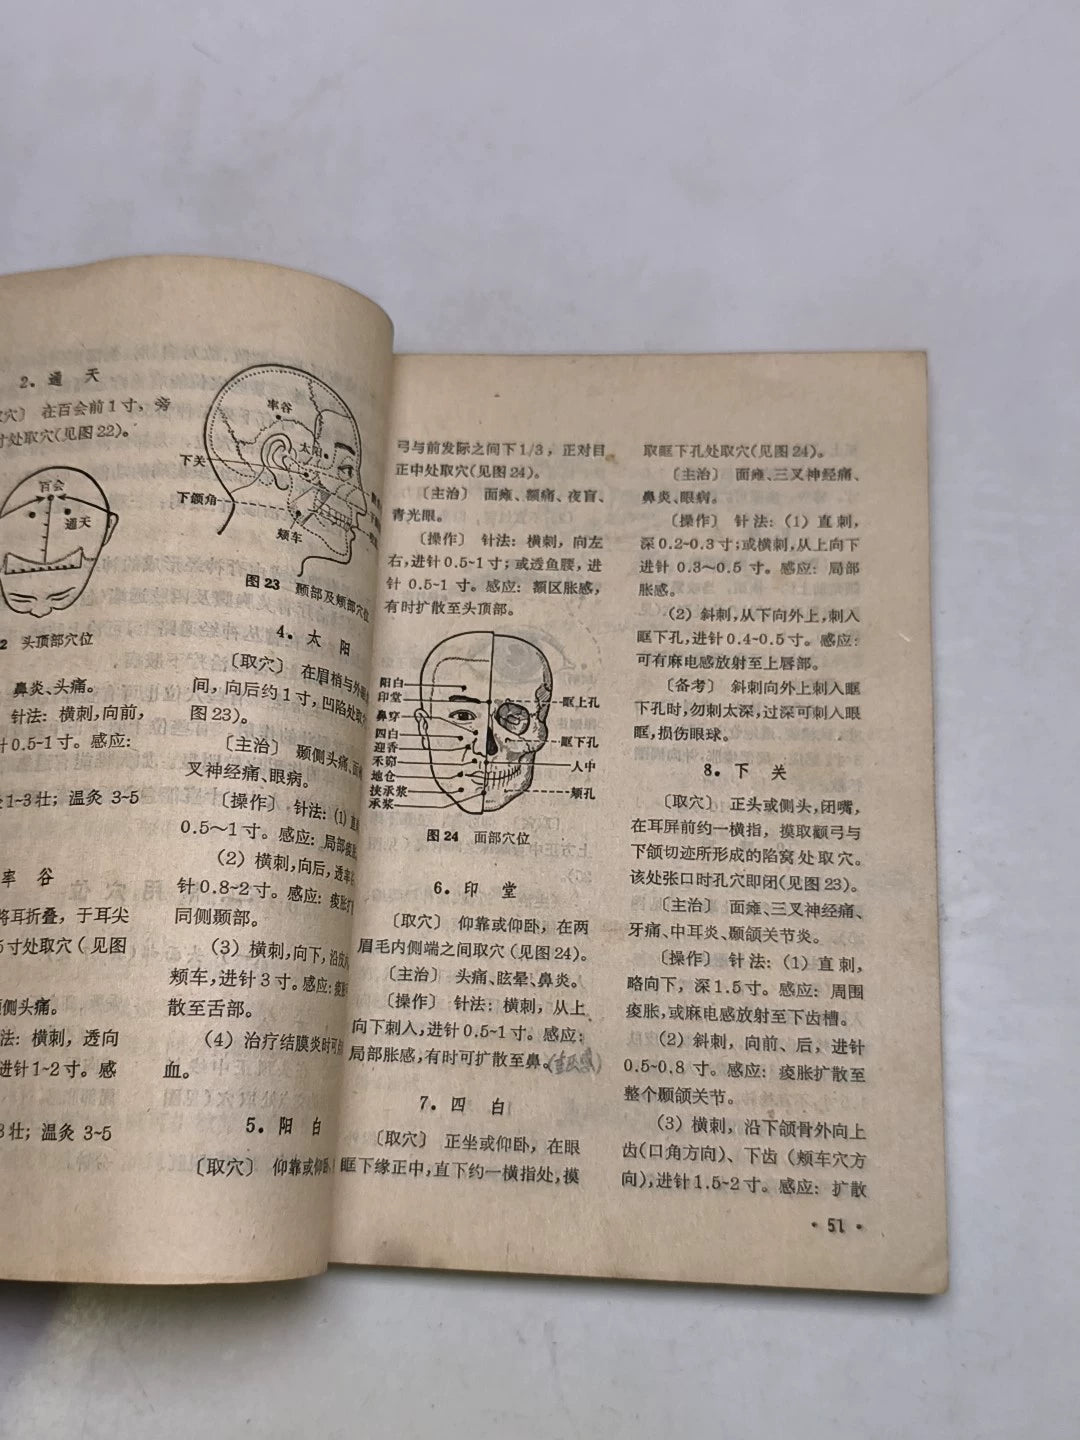 2. 通 天
取穴〕 在百会前1寸，旁
寸处取穴(见图22)。
百会
通天
2 头顶部穴位
鼻炎、头痛。
针法：横刺，向前，
针0.5-1寸。感应：
1~3壮；温灸 3~5
率 谷
将耳折叠，于耳尖
5寸处取穴（见图
颞侧头痛。
法：横刺，透向
进针1~2寸。感
3壮；温灸 3~5
率谷
太阳
下关
下颌角
颊车
图23 颞部及颊部穴位
4. 太 阳
〔取穴〕 在眉梢与外眼
间，向后约1寸，凹陷处取
图23)。
〔主治〕 颞侧头痛、面
叉神经痛、眼病。
〔操作〕 针法：(1)直
0.5～1寸。感应：局部痠
(2) 横刺，向后，透率
针0.8-2寸。感应：痠胀
同侧颞部。
(3) 横刺，向下，沿皮
颊车，进针3寸。感应：痠
散至舌部。
(4) 治疗结膜炎时可
血。
5. 阳 白
〔取穴〕 仰靠或仰卧
弓与前发际之间下1/3，正对目
正中处取穴(见图24)。
〔主治〕 面瘫、额痛、夜盲、
青光眼。
〔操作〕 针法：横刺，向左
右，进针0.5-1寸；或透鱼腰，进
针 0.5-1 寸。感应：额区胀感，
有时扩散至头顶部。
阳白
印堂
鼻穿
四白
迎香
禾窌
地仓
挟承浆
承浆
眶上孔
眶下孔
人中
颏孔
图24 面部穴位
6. 印 堂
〔取穴〕 仰靠或仰卧，在两
眉毛内侧端之间取穴(见图24)。
〔主治〕 头痛、眩晕、鼻炎。
〔操作〕 针法：横刺，从上
向下刺入，进针0.5-1寸。感应：
局部胀感，有时可扩散至鼻。
7. 四 白
〔取穴〕 正坐或仰卧，在眼
眶下缘正中，直下约一横指处，摸
取眶下孔处取穴(见图24)。
〔主治〕 面瘫、三叉神经痛、
鼻炎、眼病。
〔操作〕 针法：(1) 直刺，
深0.2-0.3寸；或横刺，从上向下
进针 0.3～0.5 寸。感应：局部
胀感。
(2) 斜刺，从下向外上，刺入
眶下孔，进针0.4-0.5寸。感应：
可有麻电感放射至上唇部。
〔备考〕 斜刺向外上刺入眶
下孔时，勿刺太深，过深可刺入眼
眶，损伤眼球。
8. 下 关
〔取穴〕 正头或侧头，闭嘴，
在耳屏前约一横指，摸取颧弓与
下颌切迹所形成的陷窝处取穴。
该处张口时孔穴即闭(见图23)。
〔主治〕 面瘫、三叉神经痛、
牙痛、中耳炎、颞颌关节炎。
〔操作〕 针法：(1) 直刺，
略向下，深1.5寸。感应：周围
痠胀，或麻电感放射至下齿槽。
(2) 斜刺，向前、后，进针
0.5-0.8 寸。感应：痠胀扩散至
整个颞颌关节。
(3) 横刺，沿下颌骨外向上
齿(口角方向)、下齿（颊车穴方
向)，进针1.5~2寸。感应：扩散
• 51 •